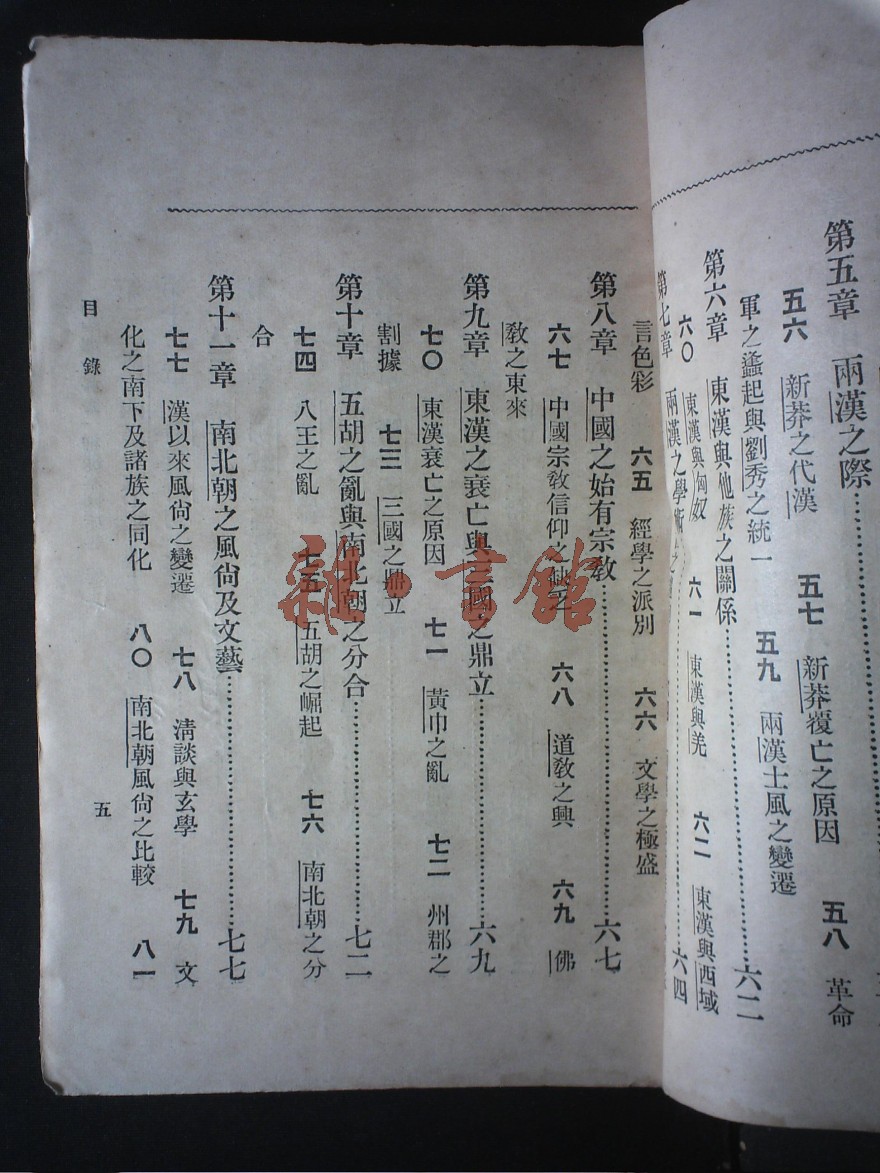 第五章 兩漢之際
五六 新莽之代漢 五七 新莽覆亡之原因 五八 革命
軍之蠭起與劉秀之統一 五九 兩漢士風之變遷
第六章 東漢與他族之關係 六二
六〇 東漢與匈奴 六一 東漢與羌 六二 東漢與西域
第七章 兩漢之學術 六四
言色彩 六五 經學之派別 六六 文學之極盛
第八章 中國之始有宗教 六七
六七 中國宗教信仰之缺乏 六八 道教之興 六九 佛
教之東來
第九章 東漢之衰亡與三國之鼎立 六九
七〇 東漢衰亡之原因 七一 黃巾之亂 七二 州郡之
割據 七三 三國之鼎立
第十章 五胡之亂與南北朝之分合 七二
七四 八王之亂 七五 五胡之崛起 七六 南北朝之分
合
第十一章 南北朝之風尙及文藝 七七
七七 漢以來風尙之變遷 七八 淸談與玄學 七九 文
化之南下及諸族之同化 八〇 南北朝風尙之比較 八一
目錄 五
雜·書館